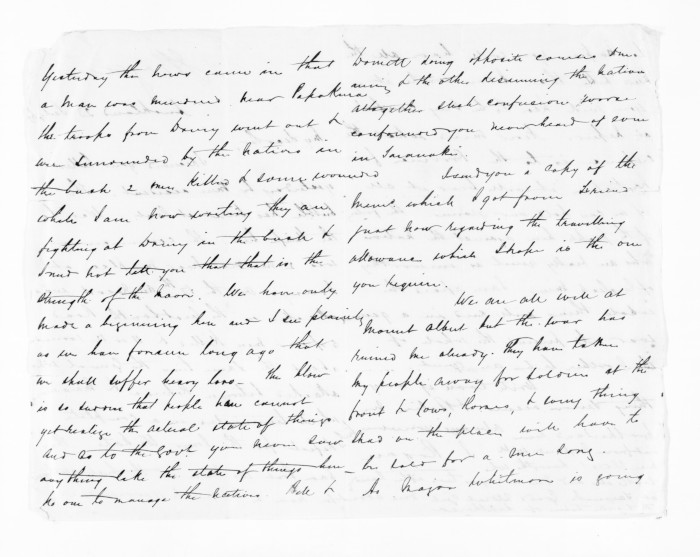 Yesterday the news came in that
a man was murdered near Papakura
the troops from Drury went out &
were surrounded by the Natives in
the bush 2 men killed & some wounded
while I am now writing they are
fighting at Drury in the bush &
I need not tell you that that is the
strength of the Maori. We have only
made a beginning here and I see plainly
as we have foreseen long ago that
we shall suffer heavy loss - the blow
is so severe that people here cannot
yet realize the actual state of things
and as to the Govt. you never saw
anything like the state of things here -
no one to manage the Natives. Bell &
Domett doing opposite courses one
arming & the other disarming the Natives
altogether such confusion worse
confounded you never heard of even
in Taranaki.
I send you a copy of the
memo which I got from
just now regarding the travelling
allowance which I hope is the one
you require.
We are all well at
Mount Albert but the war has
ruined me already. They have taken
my people away for soldiers at the
front & Cows, Horses, & every thing
I had on the place will have to
be sold for a mere song.
As Major Whitmore is going